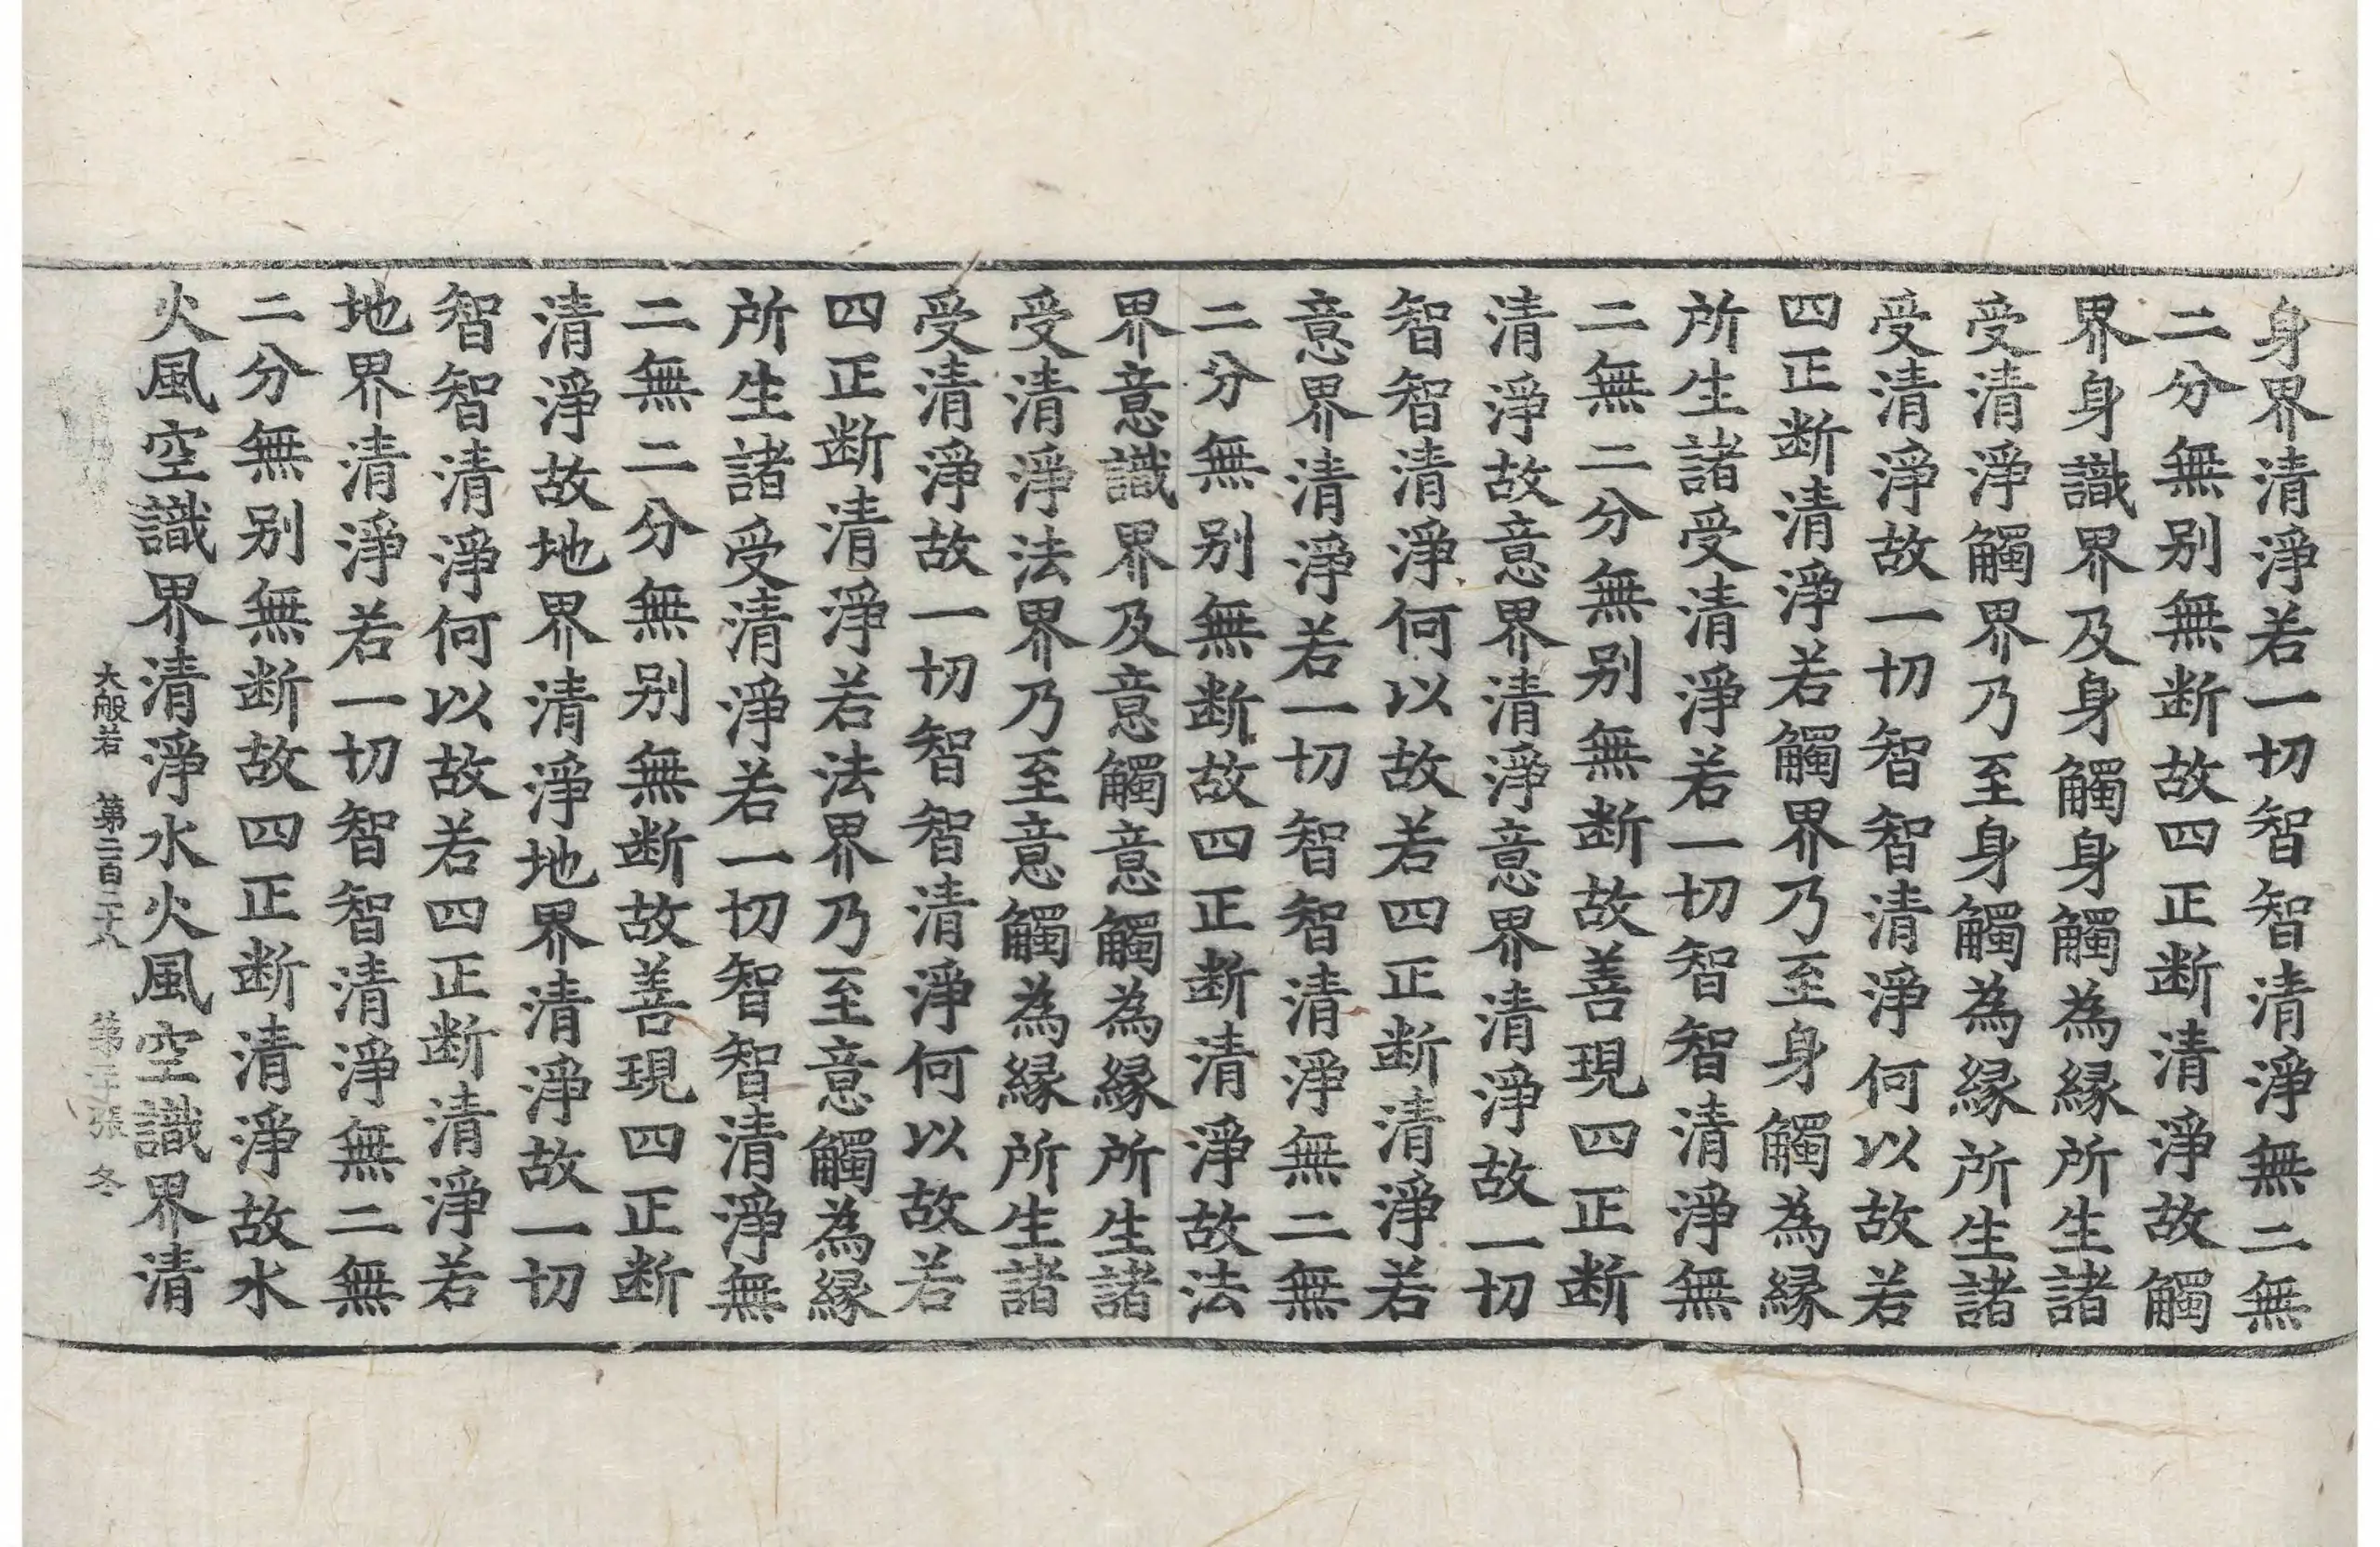 身界清淨若一切智智清淨無二無
二分無别無断故四正断清淨故觸
界身識界及身觸身觸為緣所生諸
受清淨觸界乃至身觸為緣所生諸
受清淨故一切智智清淨何以故若
四正断清淨若觸界乃至身觸為緣
所生諸受清淨若一切智智清淨無
二無二分無别無断故善現四正断
清淨故意界清淨意界清淨故一切
智智清淨何以故若四正断清淨若
意界清淨若一切智智清淨無二無
二分無别無断故四正断清淨故法
界意識界及意觸意觸為緣所生諸
受清淨法界乃至意觸為緣所生諸
受清淨故一切智智清淨何以故若
四正断清淨若法界乃至意觸為緣
所生諸受清淨若一切智智清淨無
二無二分無别無断故善現四正断
清淨故地界清淨地界清淨故一切
智智清淨何以故若四正断清淨若
地界清淨若一切智智清淨無二無
二分無别無断故四正断清淨故水
火風空識界清淨水火風空識界清
大般若 第二百二十八 第 張 冬